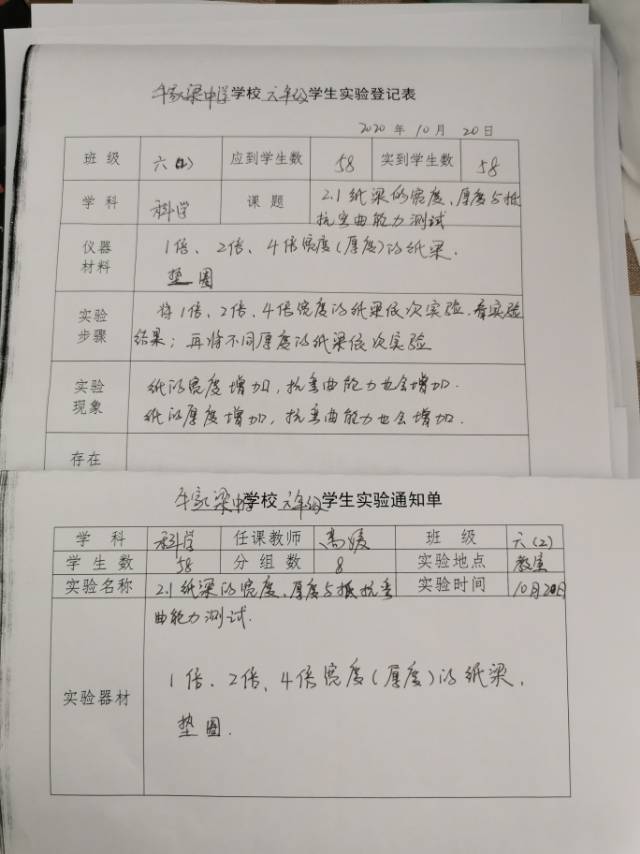 牛家梁中学学校六年级学生实验登记表
2020年10月20日
班级 六(2) 应到学生数 58 实到学生数 58
学科 科学 课题 2.1纸梁的宽度、厚度与抵
抗弯曲能力测试
仪器材料 1倍、2倍、4倍宽度(厚度)的纸梁.
垫圈
实验步骤 将1倍、2倍、4倍宽度的纸梁依次实验.看实验
结果;再将不同厚度的纸梁依次实验
实验现象 纸的宽度增加,抗弯曲能力也会增加.
纸的厚度增加,抗弯曲能力也会增加.
存在
牛家梁中学学校六年级学生实验通知单
学科 科学 任课教师 高媛 班级 六(2)
学生数 58 分组数 8 实验地点 教室
实验名称 2.1纸梁的宽度、厚度与抵抗弯 实验时间 10月20日
曲能力测试.
实验器材 1倍、2倍、4倍宽度(厚度)的纸梁,
垫圈.